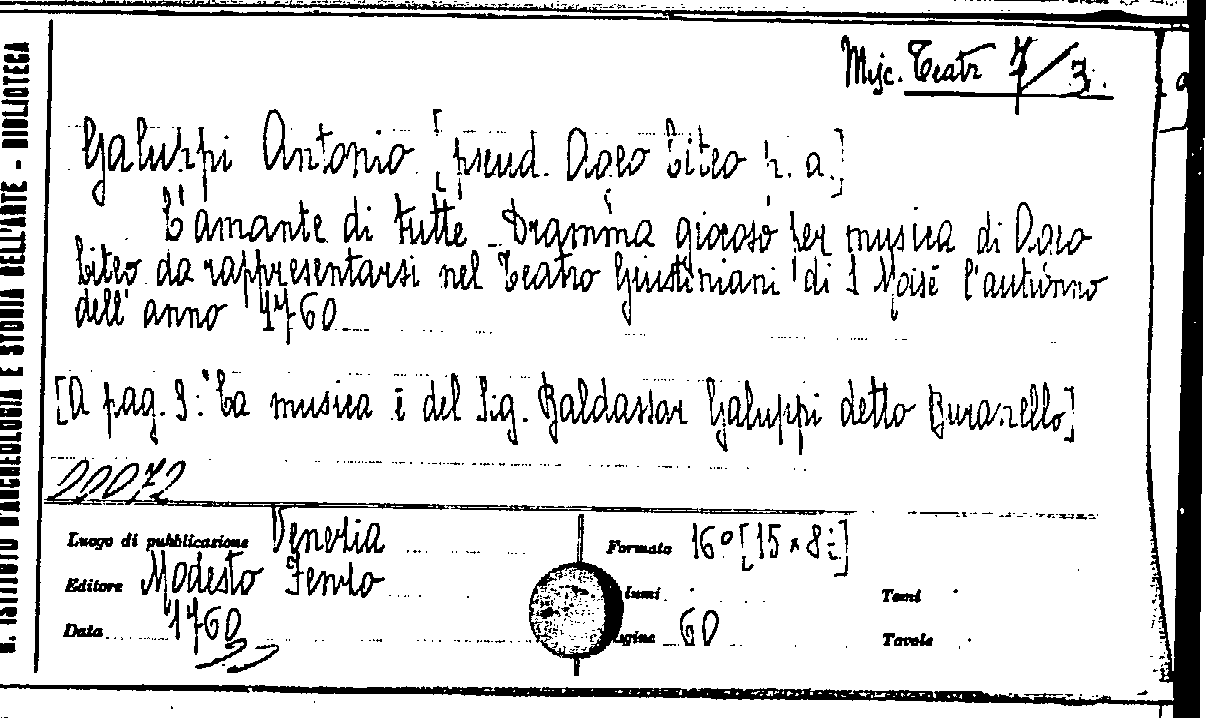 Misc. Teatr 7/3.
Galuppi Antonio [pseud. Ageo Liteo n. a.]
L'amante di tutte Dramma giocoso per musica di Ageo
Liteo da rappresentarsi nel Teatro Giustiniani di S Moisè l'autunno
dell'anno 1760
[A pag. 3: "La musica è del Sig. Baldassar Galuppi detto Buranello]
Luogo di pubblicazione Venezia
Formato 16º [15 x 8
Editore Modesto Fenzo
lumi
Tomi
Data 1760
agine 60
Tavole
R. ISTITUTO D'ARCHEOLOGIA E STORIA DELL'ARTE - BIBLIOTECA